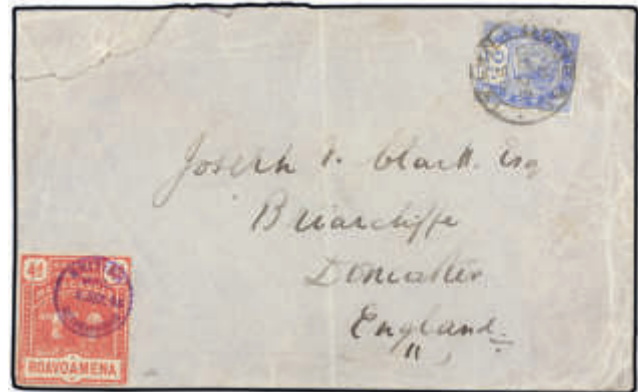 Joseph T. Clark. Esq
Briarcliffe
Doncaster
England
4d
ROAVOAMENA